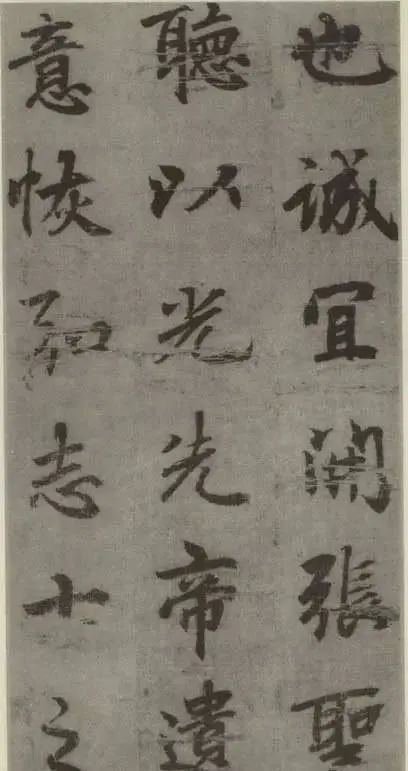 也誠冝開張聖
聽以光先帝遺
意恢弘志士之